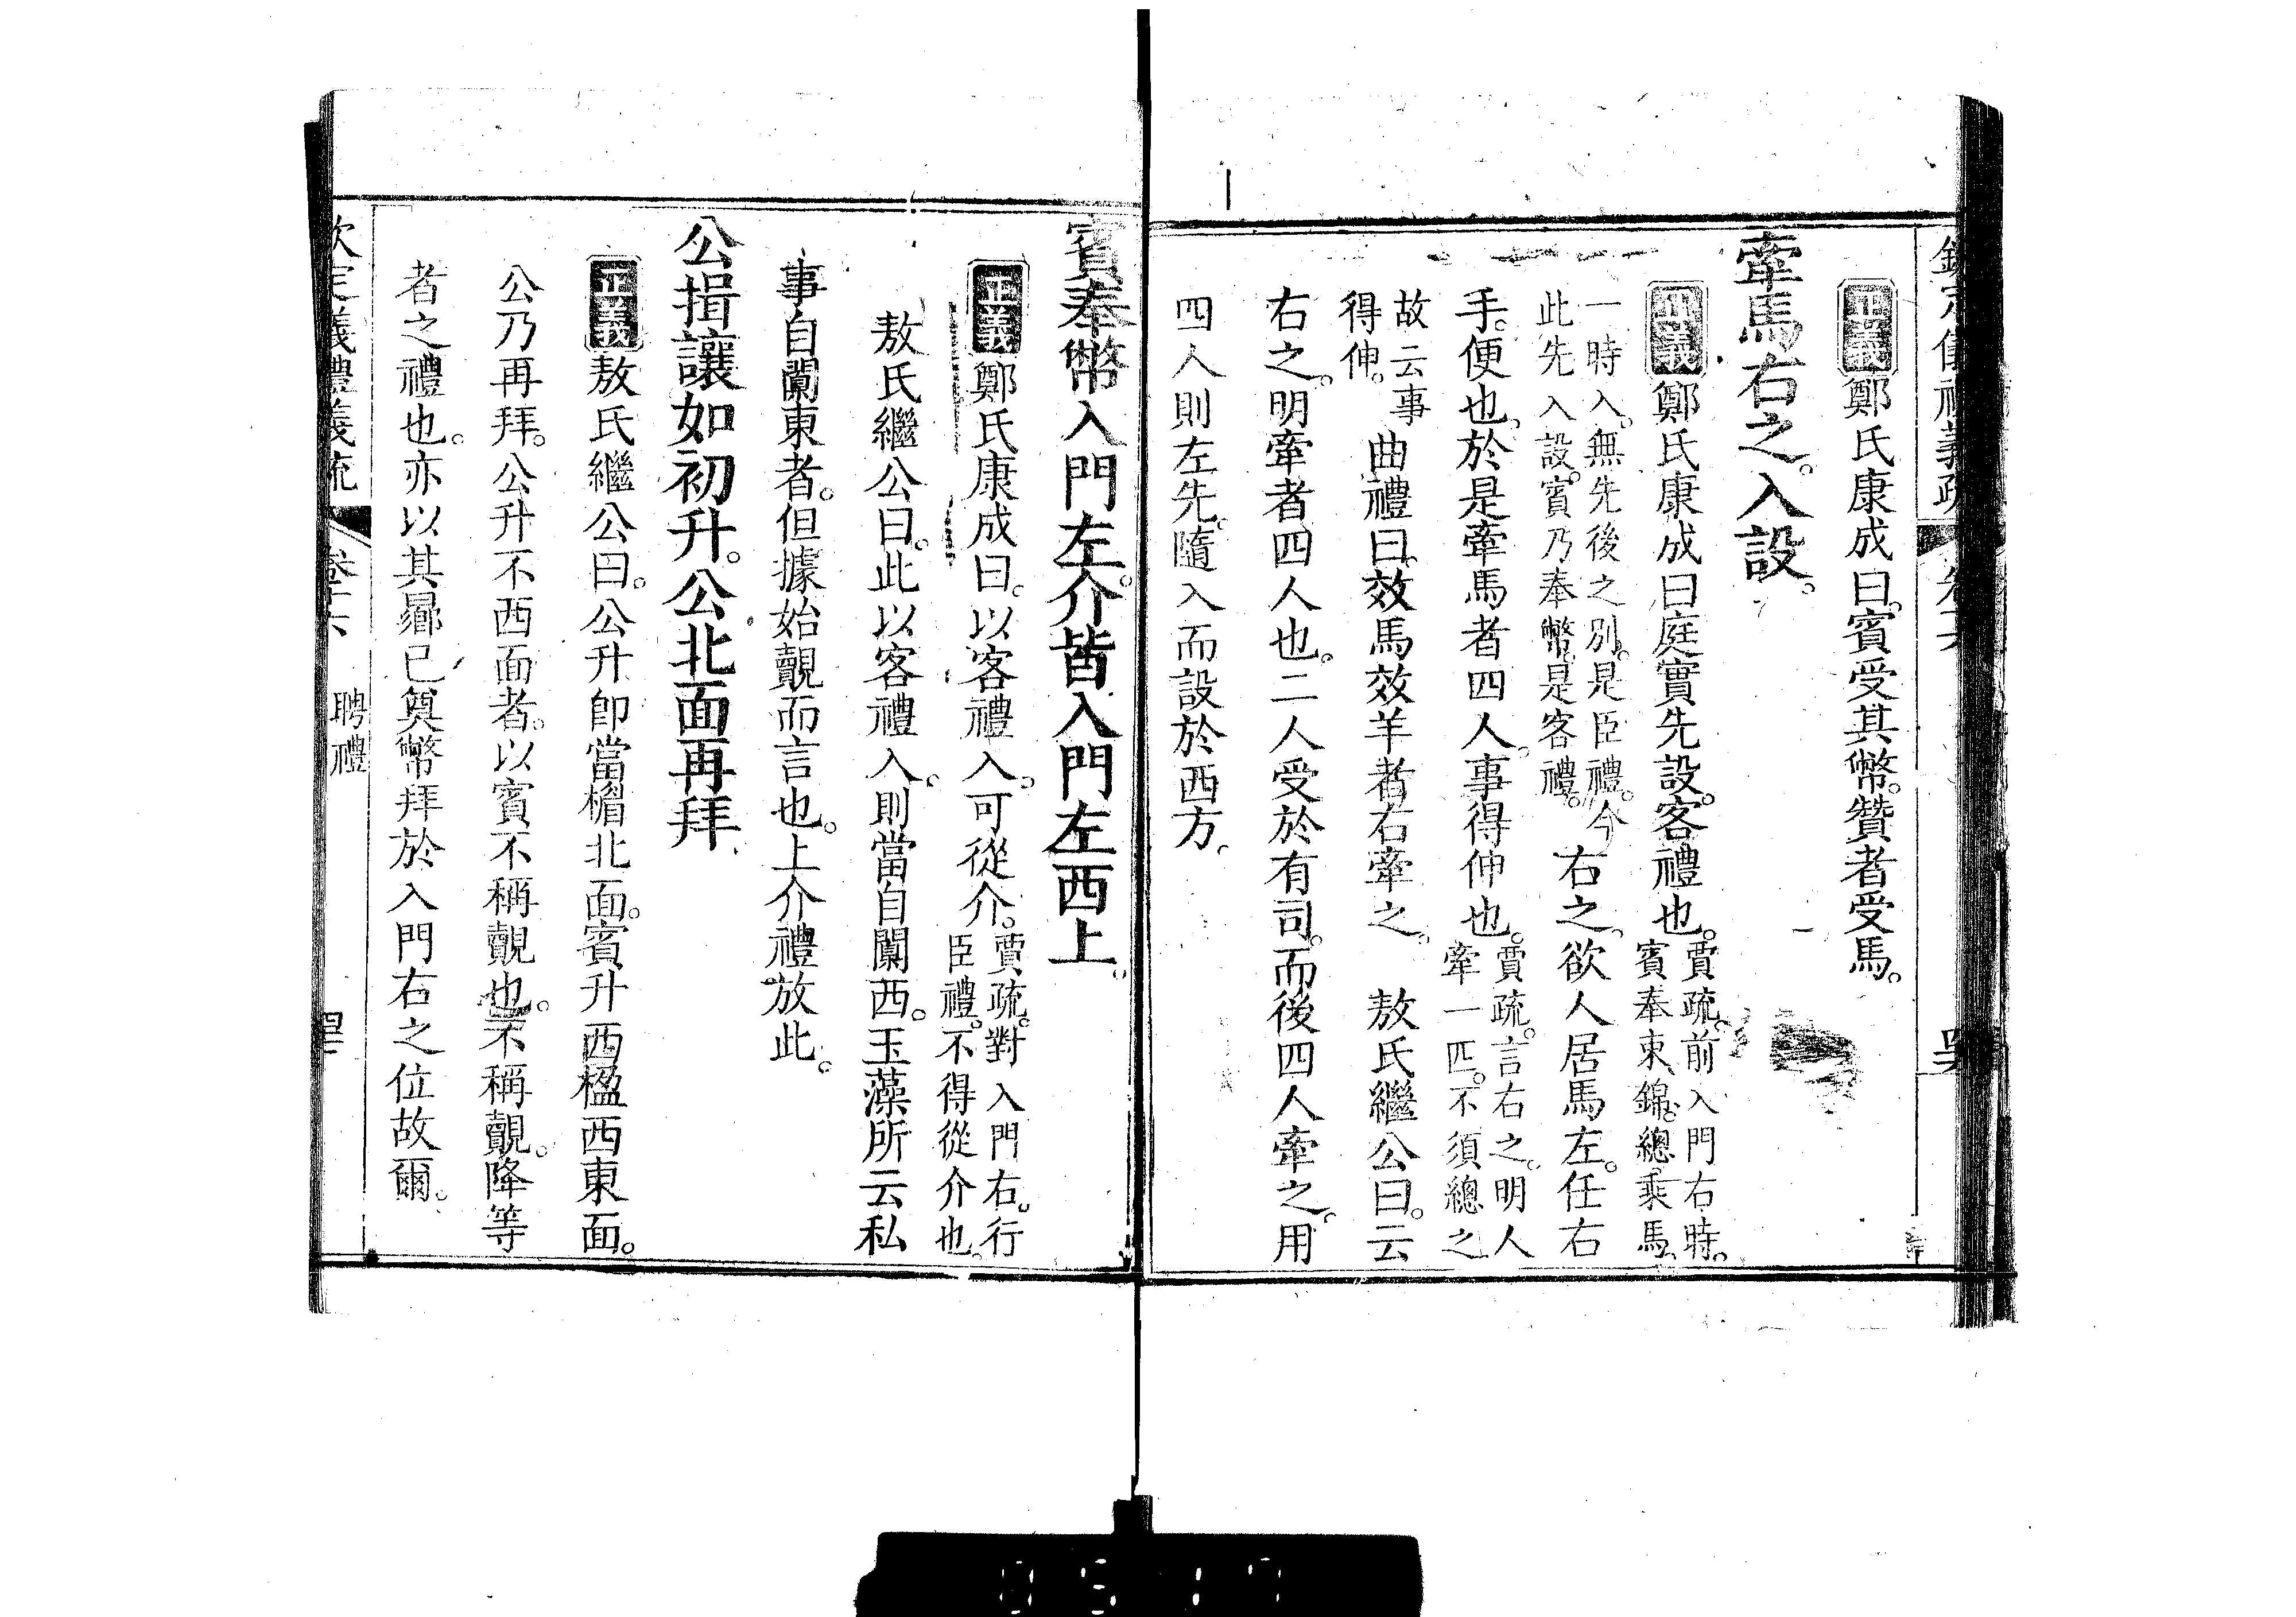 正義鄭氏康成曰。賓受其幣。贊者受馬。
牽馬右之。入設。
正義鄭氏康成曰庭實先設。客禮也。賈疏。前入門右時。賓奉束錦。總乘馬。
一時入。無先後之別。是臣禮。今此先入設。賓乃奉幣。是客禮。右之。欲人居馬左。任右
手。便也。於是牽馬者四人。事得伸也。賈疏。言右之。明人牽一匹。不須總之
故云事得伸。曲禮曰。效馬效羊者右牽之。敖氏繼公曰。云
右之。明牽者四人也。二人受於有司。而後四人牽之。用
四人則左先。隨入而設於西方。
賓奉幣入門左。介皆入門左西上。
正義鄭氏康成曰。以客禮入。可從介。賈疏。對入門右。行臣禮。不得從介也。
敖氏繼公曰。此以客禮入。則當自闑西。玉藻所云私
事自闑東者。但據始覿而言也。上介禮放此。
公揖讓如初升。公北面再拜。
正義敖氏繼公曰。公升即當楣北面。賓升西楹西東面。
公乃再拜。公升不西面者。以賓不稱覿也。不稱覿。降等
者之禮也。亦以其曏已奠幣拜於入門右之位故爾。
欽定義禮義疏 卷十六 聘禮